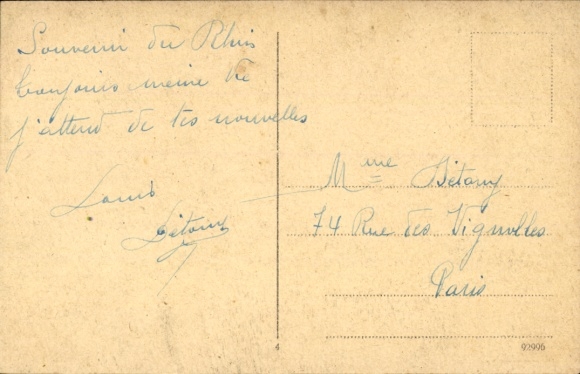 Souvenir du Rhin
toujours meme vie
j'attend de tes nouvelles
Louis
Bétouy
Mme Bétouy
74 Rue des Vignolles
Paris
4
92996